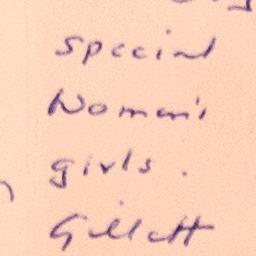 special
Women's
girls.
Gillett